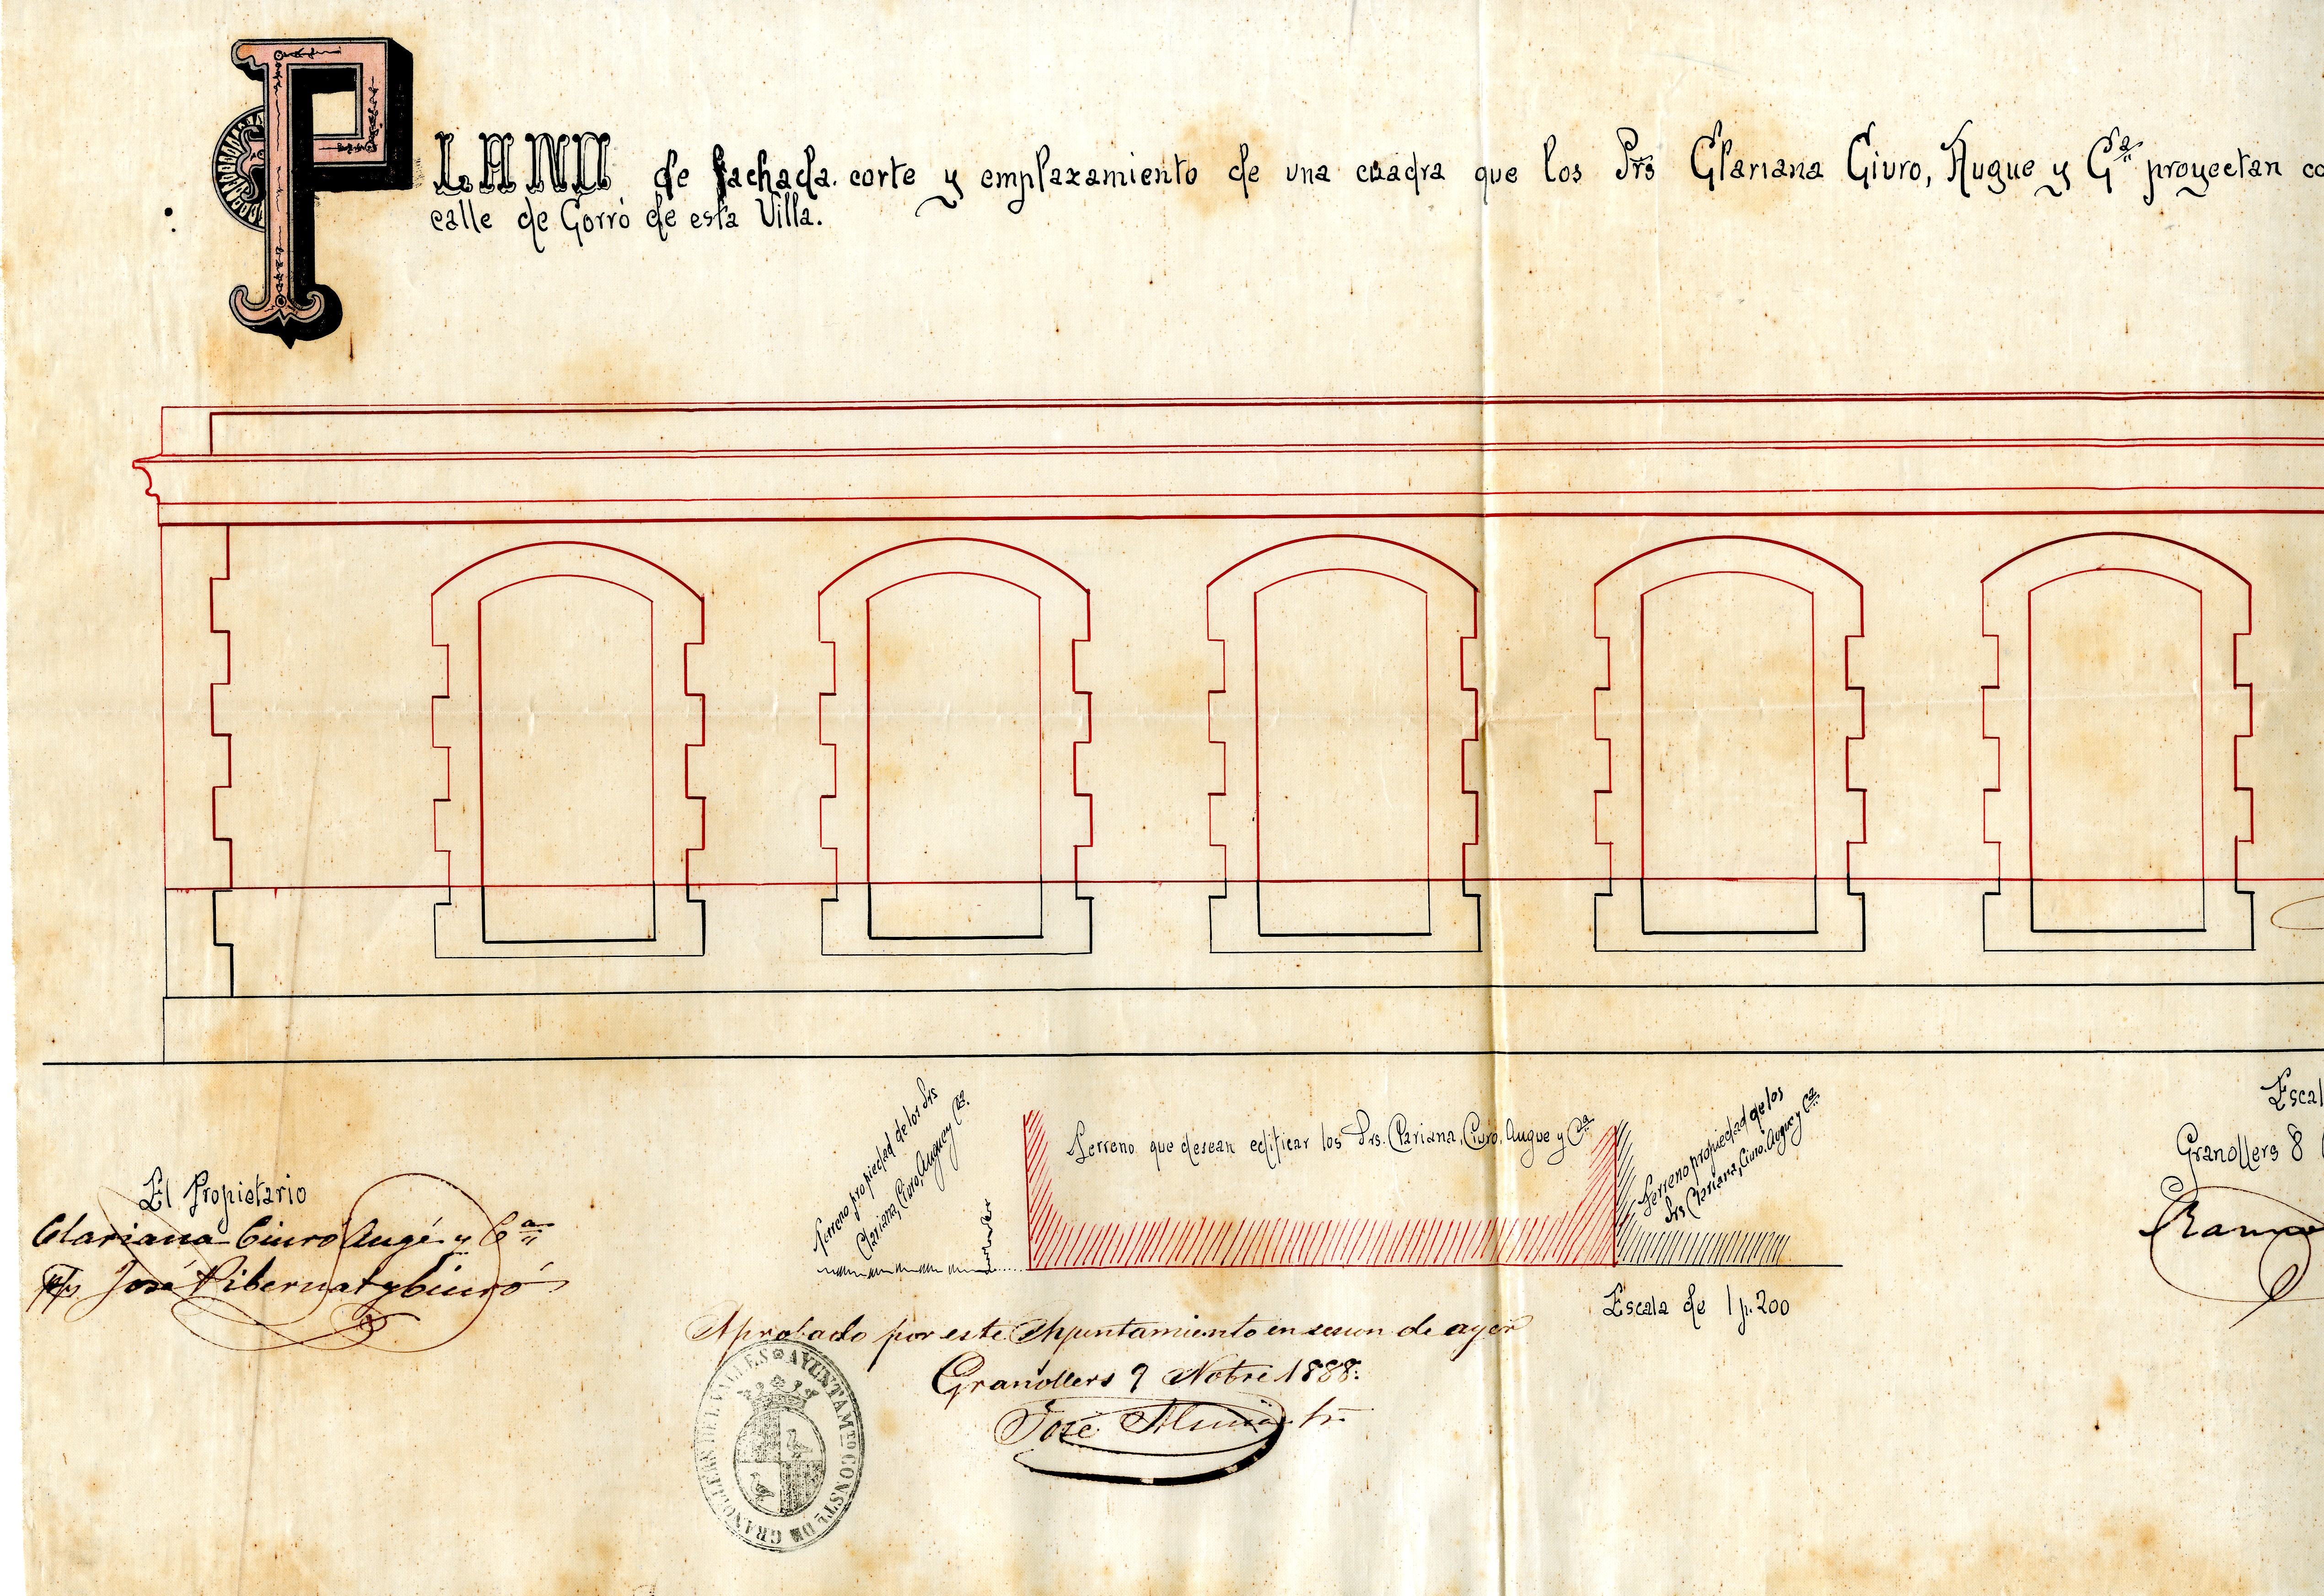 PLANO de fachada. corte y emplazamiento de una cuadra que los Srs Clariana Ciuro, Augue y Cª proyectan co
calle de Corró de esta Villa.
Terreno propiedad de los Srs
Clariana, Ciuro, Augue y Cª.
Terreno que desean edificar los Srs. Clariana, Ciuro, Augue y Cª
Terreno propiedad de los
Srs Clariana, Ciuro, Augue y Cª.
Escala de 1 p. 200
Escal
Granollers 8
Ramo
El Propietario
Clariana Ciuro Augé y Cª
P/p José Pibernat y Ciuró
Aprobado por este Ayuntamiento en sesion de ayer
Granollers 9 Nobre 1888.
José
AYUNTAMTO CONSTL DE GRANOLLERS DEL VALLES